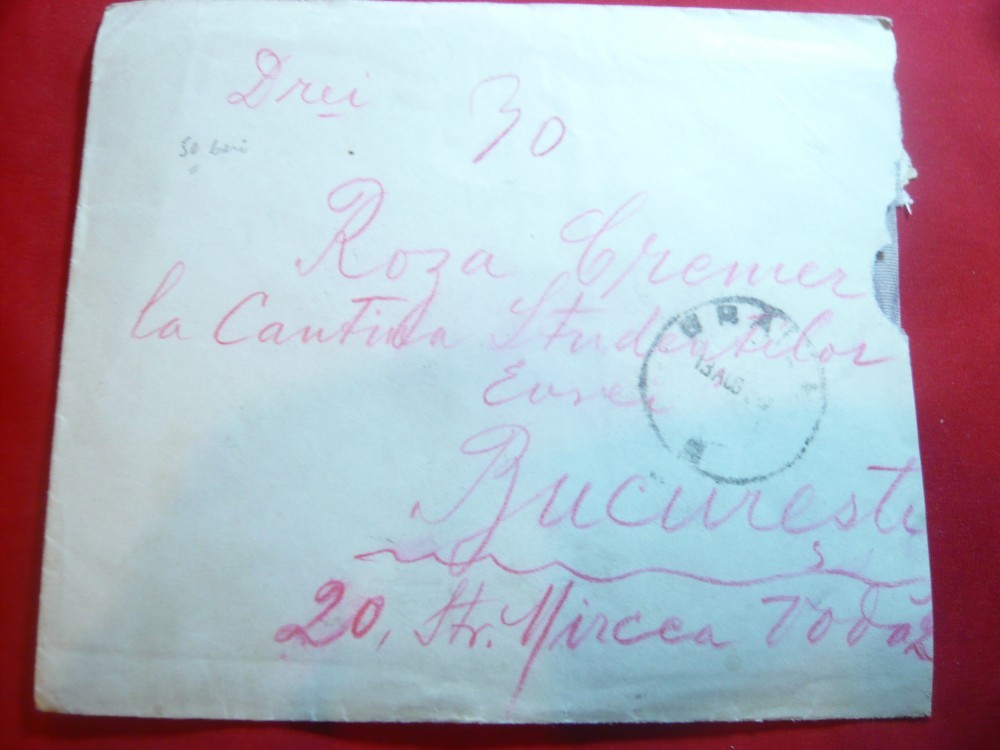 Drei 30
30 bani
Roza Cremer
la Cantina Studentilor
Evrei
Bucuresti
20, Str. Mircea Vodă
13 AUG